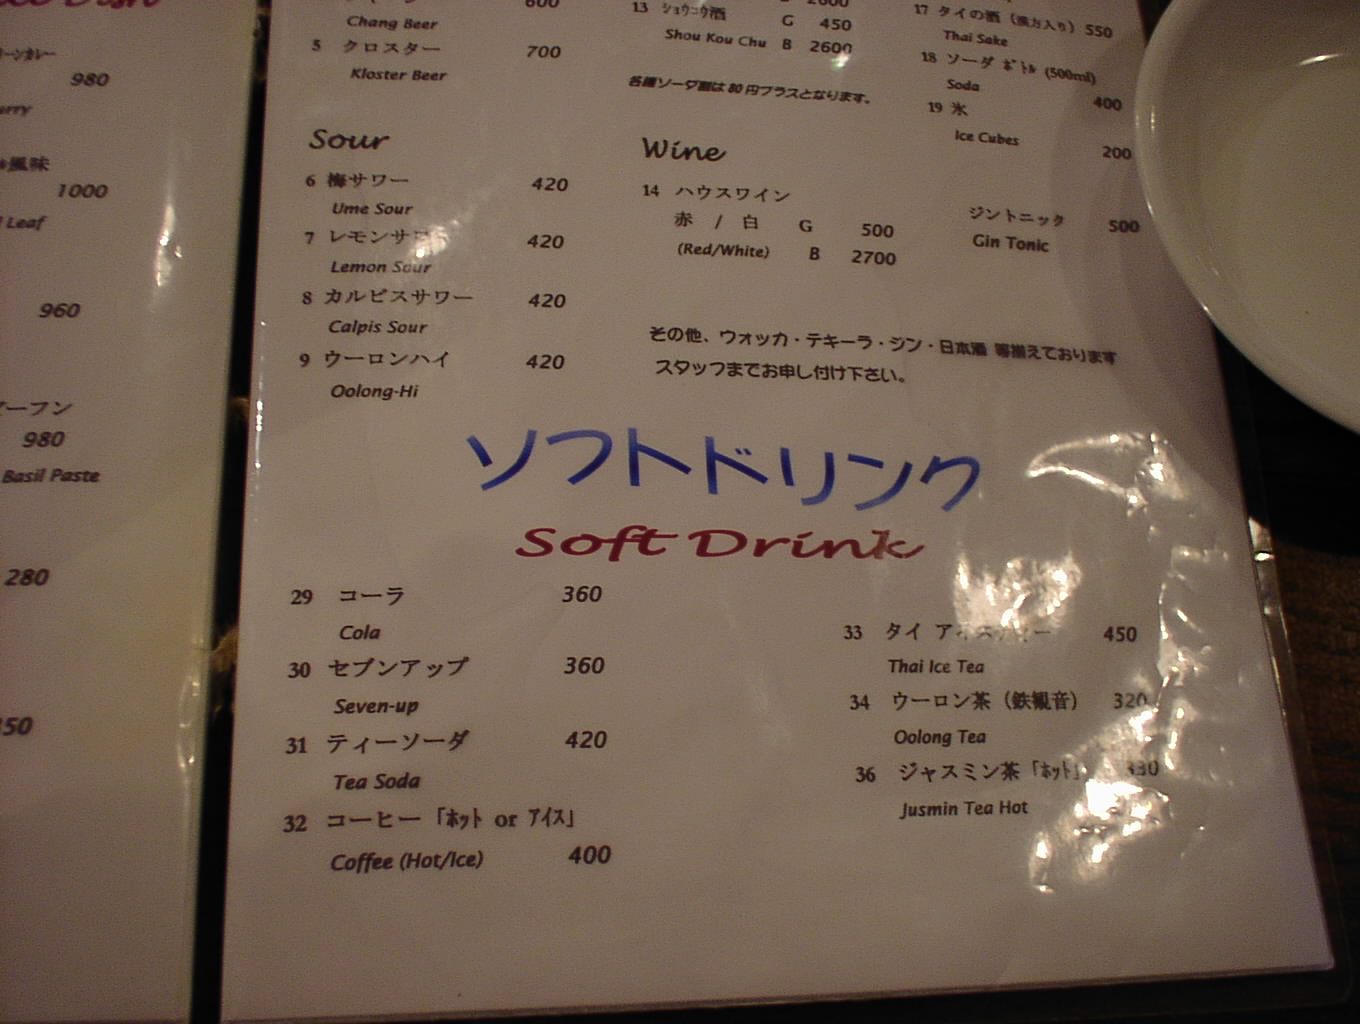 ーンカレー
980
風味
1000
Leaf
960
ーフン
980
Basil Paste
280
Chang Beer
5 クロスター 700
Kloster Beer
Sour
6 梅サワー 420
Ume Sour
7 レモンサワー 420
Lemon Sour
8 カルピスサワー 420
Calpis Sour
9 ウーロンハイ 420
Oolong-Hi
13 ショウコウ酒 G 450
Shou Kou Chu B 2600
各種ソーダ割は 80 円プラスとなります。
Wine
14 ハウスワイン
赤 / 白 G 500
(Red/White) B 2700
17 タイの酒（漢方入り）550
Thai Sake
18 ソーダ ボトル (500ml)
Soda 400
19 氷
Ice Cubes 200
ジントニック 500
Gin Tonic
その他、ウォッカ・テキーラ・ジン・日本酒 等揃えております
スタッフまでお申し付け下さい。
ソフトドリンク
Soft Drink
29 コーラ 360
Cola
30 セブンアップ 360
Seven-up
31 ティーソーダ 420
Tea Soda
32 コーヒー「ホット or アイス」
Coffee (Hot/Ice) 400
33 タイ 450
Thai Ice Tea
34 ウーロン茶（鉄観音） 320
Oolong Tea
36 ジャスミン茶「ホット」
Jusmin Tea Hot